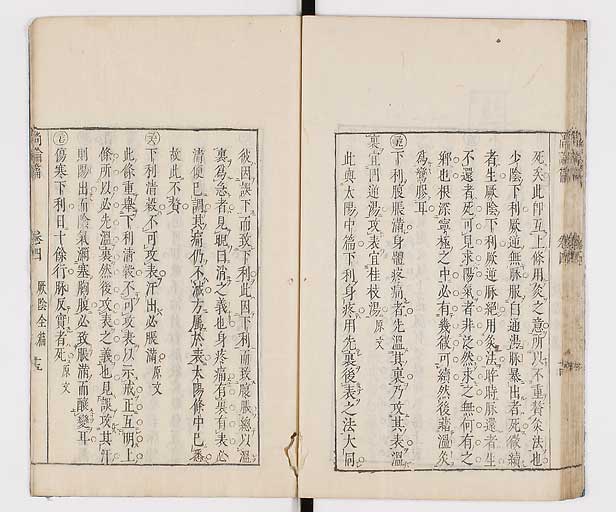 死矣此卽互上條用灸之意所以不重贅灸法也
少陰下利厥逆無脉服白通湯脉暴出者死微續
者生厥陰下利厥逆脉絕用灸法晬時脉還者生
不還者死可見求陽氣者非泛然求之無何有之
鄉也根深寧極之中必有幾微可續然後藉溫灸
爲鸞膠耳
下利腹脹滿身體疼痛者先溫其裏乃攻其表溫
裏宜四逆湯攻表宜桂枝湯 原文
此與太陽中篇下利身疼用先裏後表之法大同
彼因誤下而致下利此因下利而致腹脹總以溫
裏爲急者見睍曰消之義也身疼痛有裏有表必
清便已調其痛仍不減方屬於表太陽條中已悉
故此不贅
下利清穀不可攻表汗出必脹滿 原文
此條重舉下利清穀不可攻表以示戒正互明上
條所以必先溫裏然後攻表之義也見誤攻其汗
則陽出而陰氣彌塞胸腹必致脹滿而釀變耳
傷寒下利日十餘行脉反實者死 原文
尚論篇 卷四 厥陰全篇